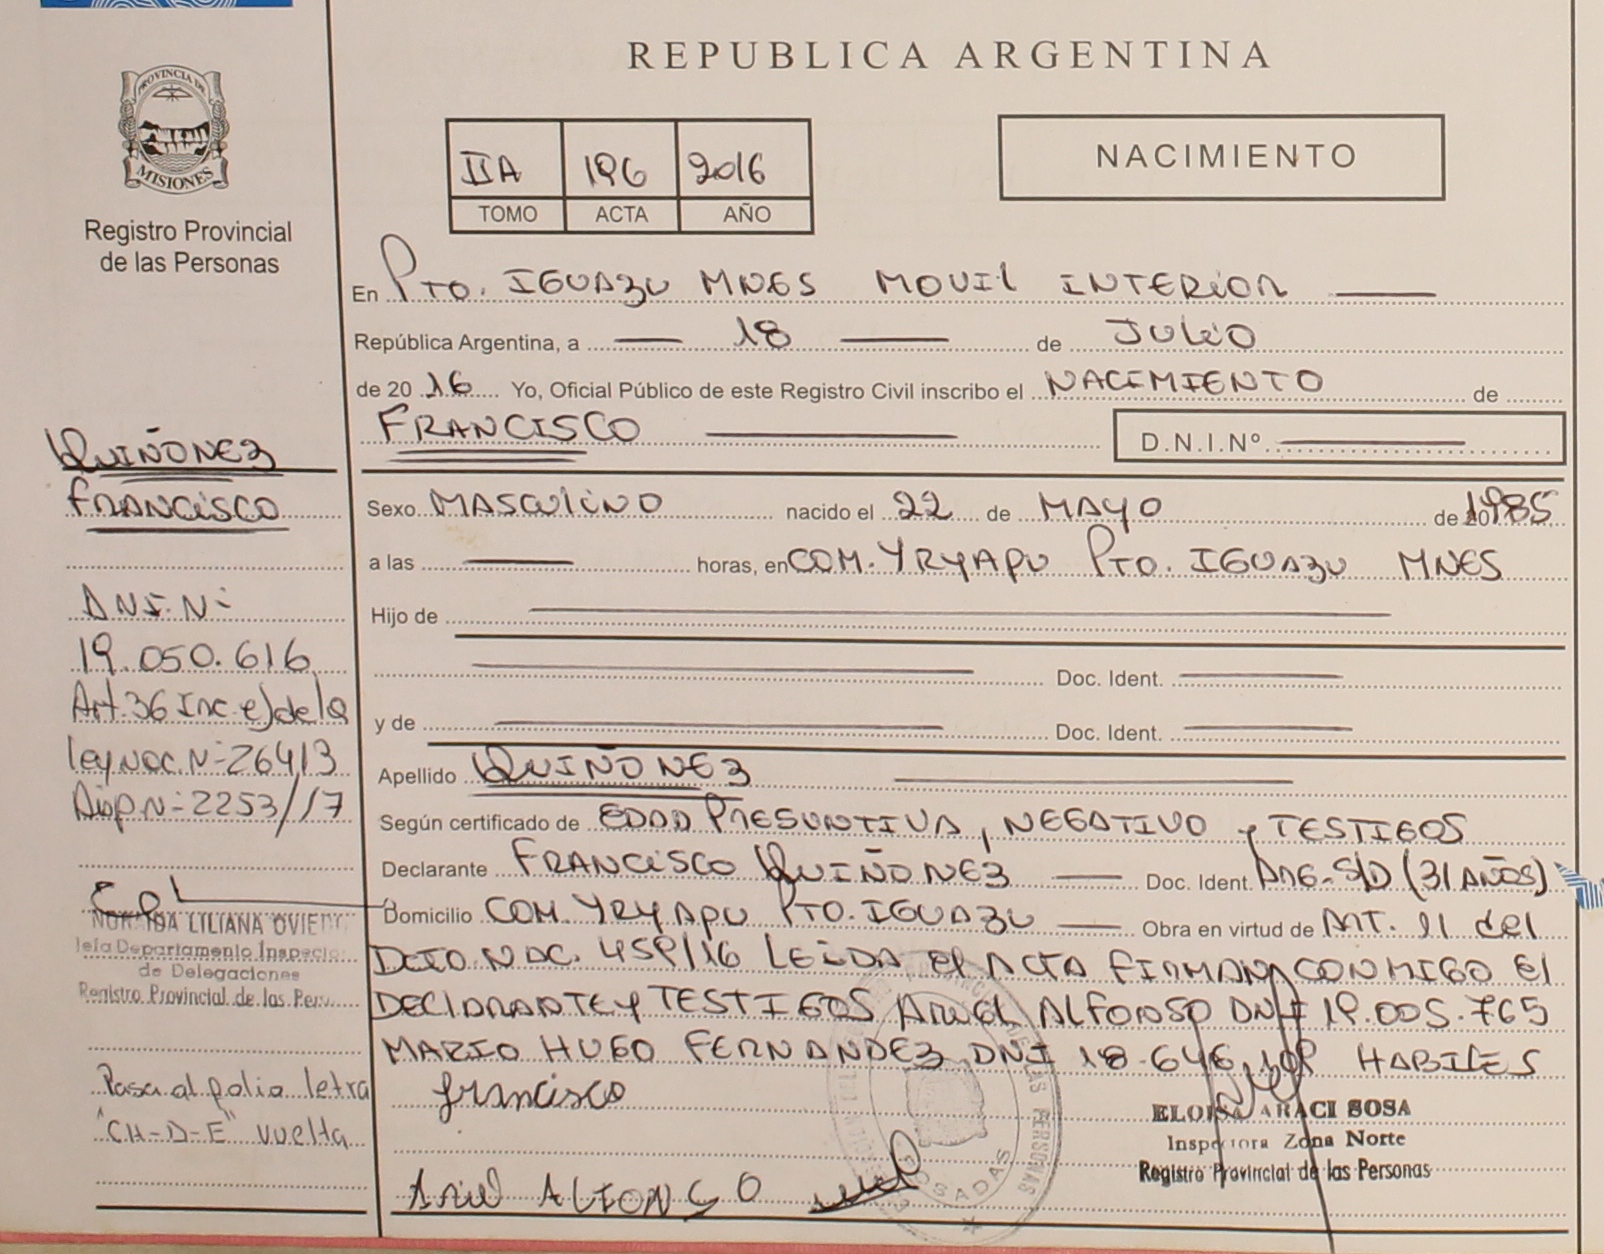 REPUBLICA ARGENTINA
PROVINCIA DE
MISIONES
Registro Provincial
de las Personas
IIA 196 2016
TOMO ACTA AÑO
NACIMIENTO
En PTO. IGUAZU MNES MOVIL INTERIOR
República Argentina, a 18 de JULIO
de 2016 Yo, Oficial Público de este Registro Civil inscribo el NACIMIENTO de
FRANCISCO D.N.I.Nº
Sexo MASCULINO nacido el 22 de MAYO de 1985
a las horas, en COM. YRYAPU PTO. IGUAZU MNES
Hijo de
Doc. Ident.
y de Doc. Ident.
Apellido QUIÑONEZ
Según certificado de EDAD PRESUNTIVA, NEGATIVO y TESTIGOS
Declarante FRANCISCO QUIÑONEZ Doc. Ident. ARG. S/D (31 AÑOS)
Domicilio COM. YRYAPU PTO. IGUAZU Obra en virtud de ART. 11 del
DCTO NAC. 459/16 LEIDA el ACTA FIRMAN CONMIGO El
DECLARANTE y TESTIGOS ARIEL ALFONSO DNI 19.005.765
MARIO HUGO FERNANDEZ DNI 18.646.109 HABILES
francisco
Ariel ALFONSO
ELOISA ARACI SOSA
Inspectora Zona Norte
Registro Provincial de las Personas
POSADAS
QUIÑONEZ
FRANCISCO
DNI. Nº
19.050.616
Art. 36 Inc e) de la
ley NAC. Nº 26413
Disp Nº 2253/17
LILIANA OVIEDO
Jefa Departamento Inspección
de Delegaciones
Registro Provincial de las Pers
Pasa al folio letra
"CH-D-E" vuelta